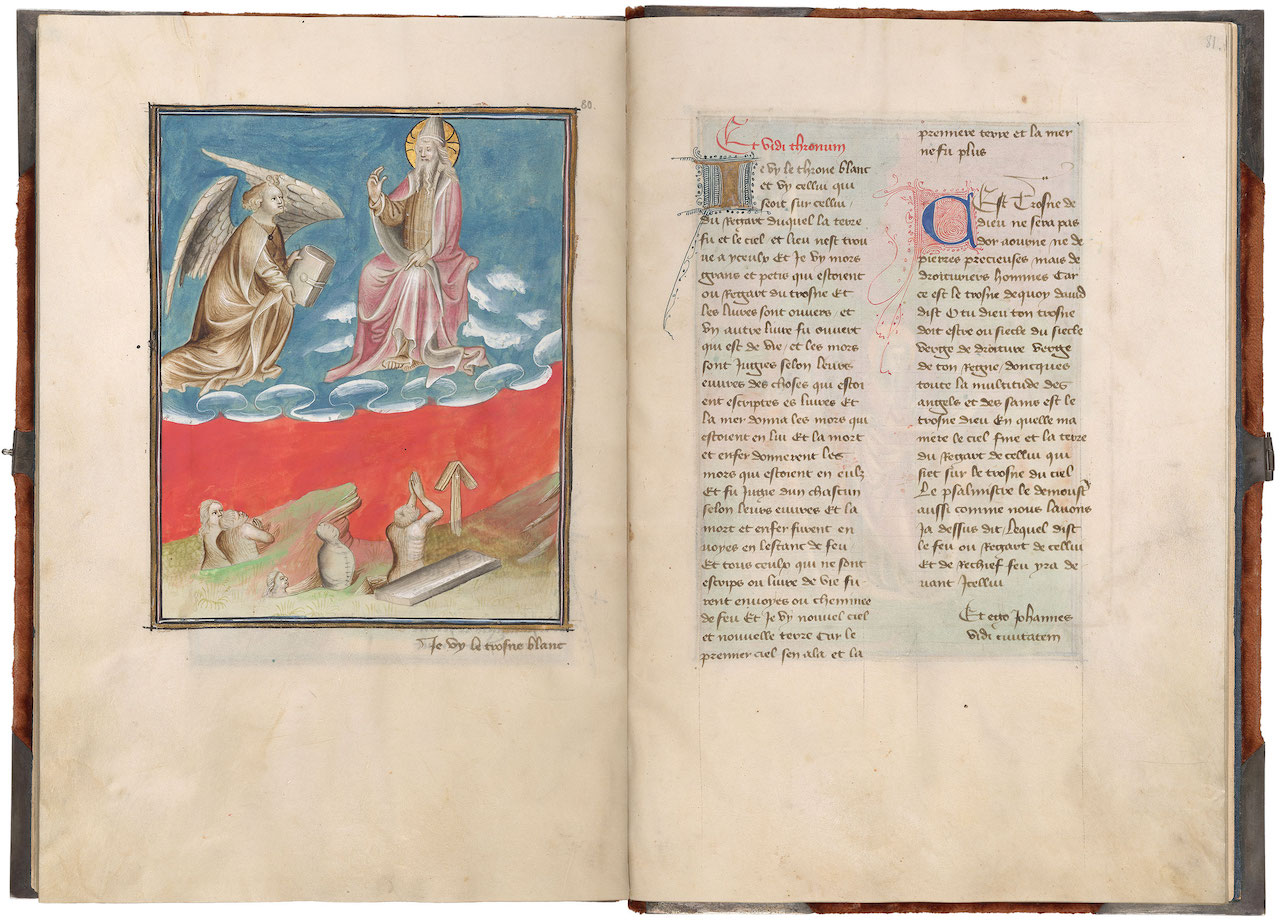 80.
Je vy le trosne blanc
81.
Et vidi thronum
Ie vy le throne blanc
et vy cellui qui
seoit sur cellui
du Regart duquel la terre
fu et le ciel et lieu nest trou
ve a yceulx Et Je vy mors
grans et petis qui estoient
ou Regart du trosne Et
les livres sont ouvers / et
vn autre livre fu ouvert
qui est de vie / et les mors
sont Jugies selon leurs
euvres des choses qui estoi
ent escriptes es livres Et
La mer donna les mors qui
estoient en lui Et la mort
et enfer donnerent les
mors qui estoient en eulz
Et fu Jugie dun chascun
selon leurs euvres Et la
mort et enfer furent en
voyes en lestanc de feu
Et tous ceulx qui ne sont
escrips ou livre de vie fu
rent envoyes ou cheminee
de feu Et Je vy nouvel ciel
et nouvelle terre Car le
premier ciel sen ala et la
premiere terre et la mer
ne fu plus
Cest Trosne de
dieu ne sera pas
dor aourne ne de
pierres precieuses mais de
droicturiers hommes Car
ce est le trosne de quoy david
dist O tu dieu ton trosne
doit estre ou siecle du siecle
verge de droiture verge
de ton Regne / doncques
toute la multitude des
angels et des sains est le
trosne dieu En quelle ma
niere le ciel fine et la terre
du Regart de cellui qui
siet sur le trosne du ciel
Le psalmistre le demoustr
aussi comme nous lavons
Ja dessus dit / Lequel dist
le feu ou Regart de cellui
Et de Rechief feu yra de
vant Icellui
Et ego Johannes
vidi civitatem